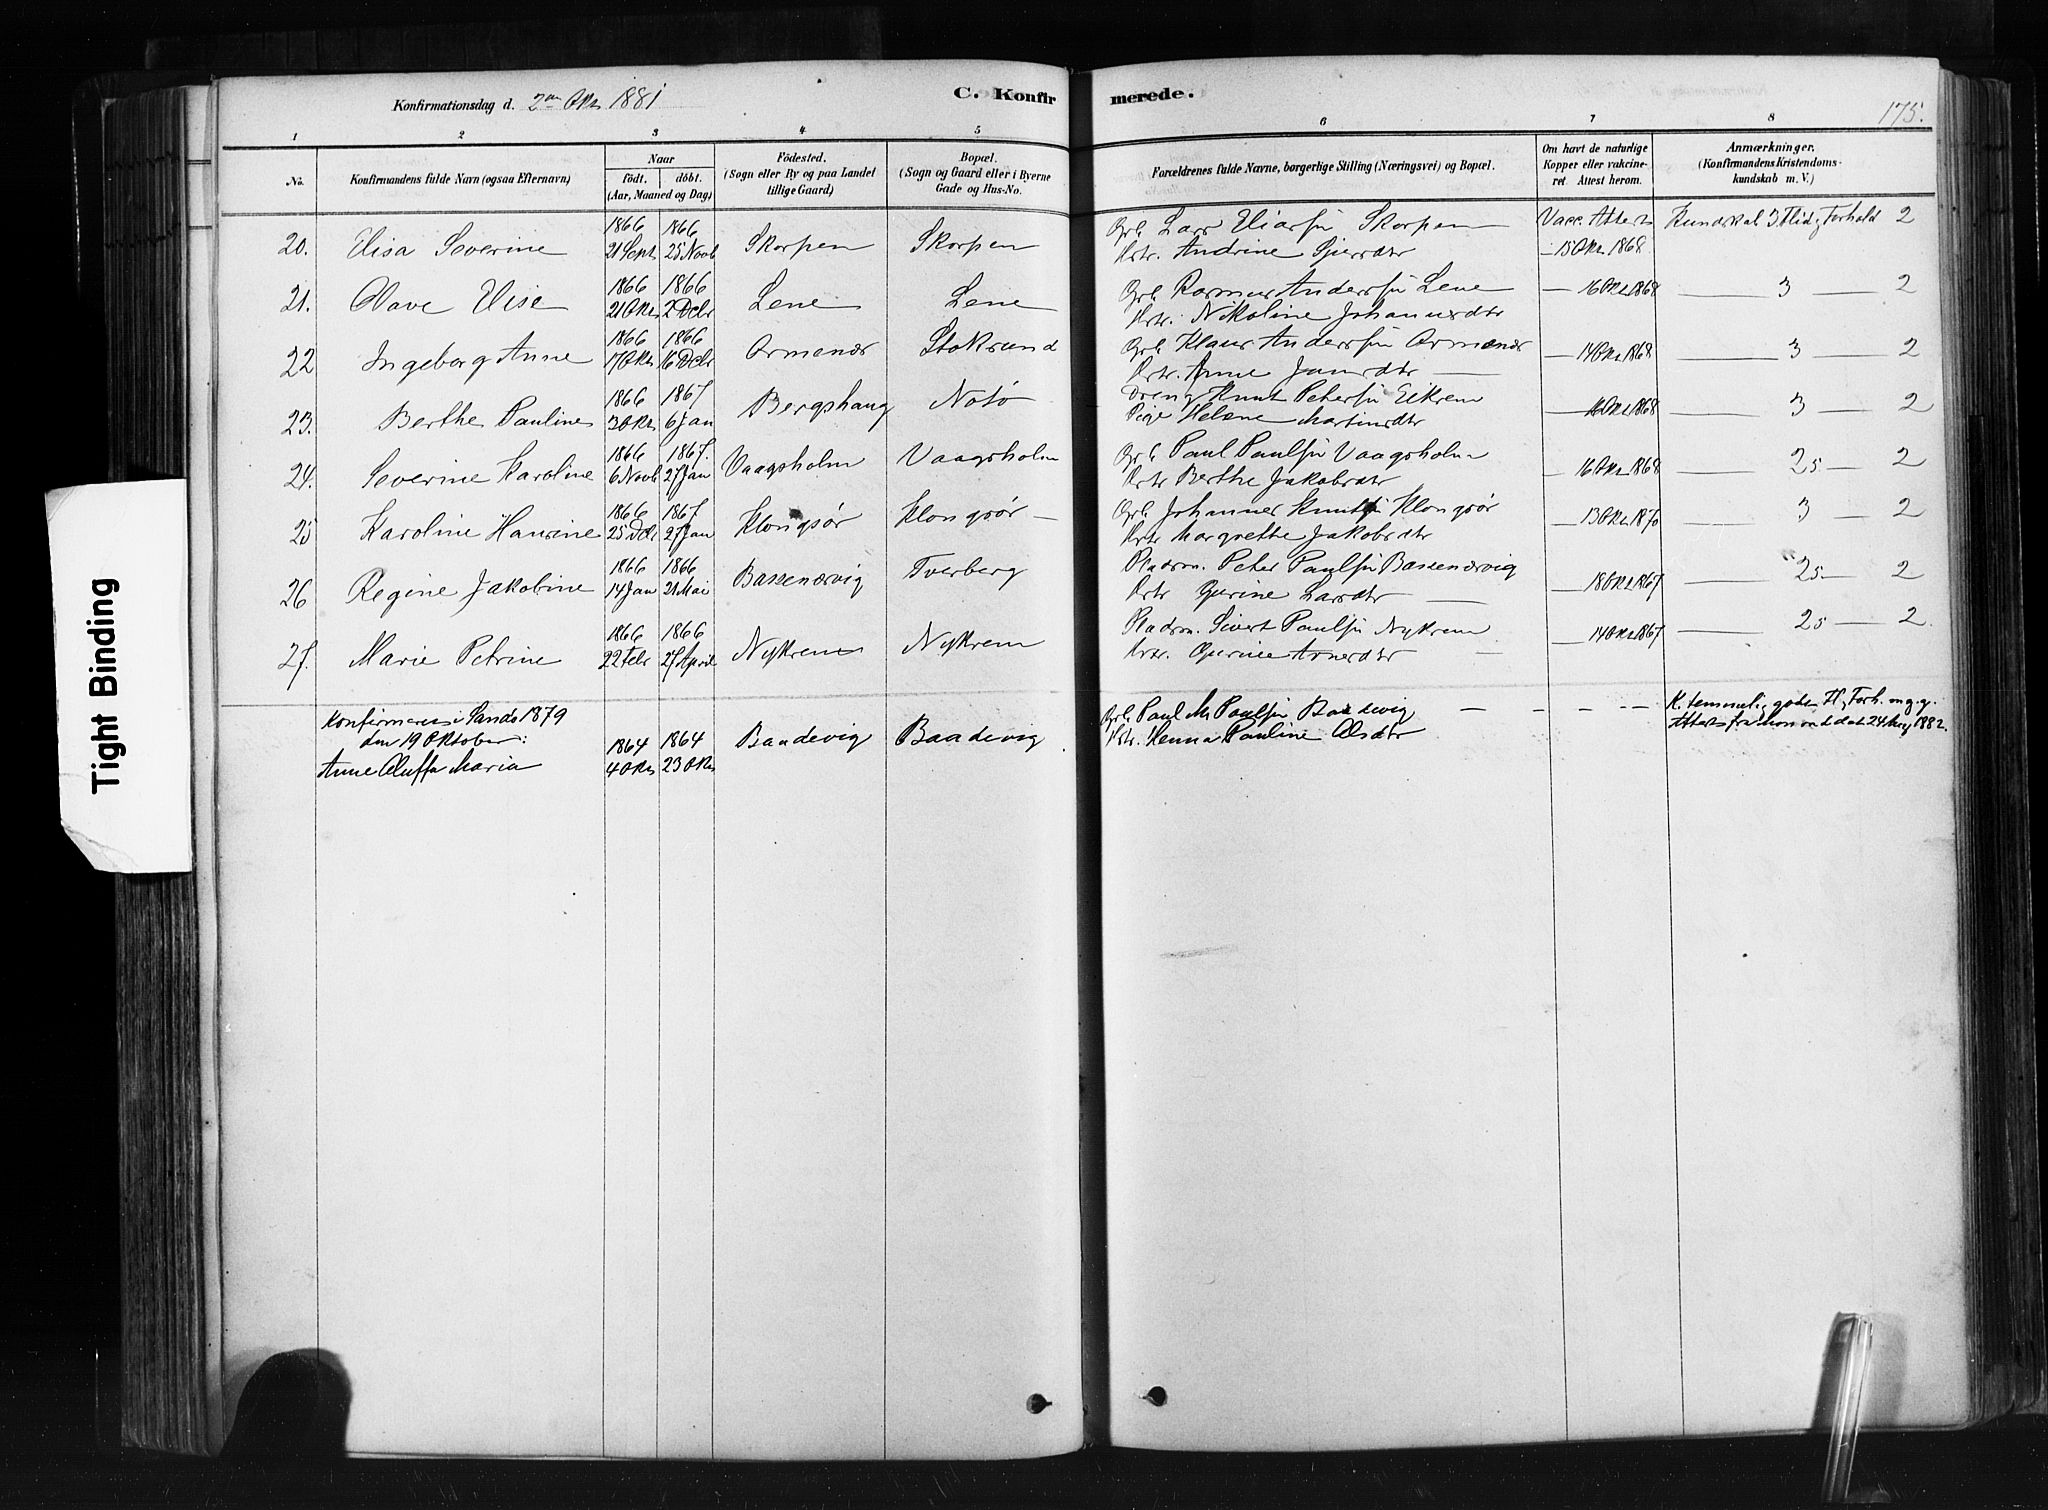 Konfirmationsdag d. 2den Okt 1881 C. Konfirmerede. 175.
1 2 3 4 5 6 7 8
No. Konfirmandens fulde Navn (ogsaa Efternavn) Naar födt. döbt. (Aar, Maaned og Dag) Födested. (Sogn eller By og paa Landet tillige Gaard) Bopæl. (Sogn og Gaard eller i Byerne Gade og Hus-No. Forældrenes fulde Navne, borgerlige Stilling (Næringsvei) og Bopæl. Om havt de naturlige Kopper eller vakcineret. Attest herom. Anmærkninger. (Konfirmandens Kristendomskundskab m. V.)
20. Elisa Severine 1866 21 Sept 1866 25 Novb Skorpen Skorpen Grb. Lars Eliassen Skorpen Hstr. Andrine Sjursdtr Vacc. Attest 15 Okt 1868 Kundskab 3 Flid og Forhold 2
21. Olave Elise 1866 21 Okt 1866 2 Dcbr Lene Lene Grb. Rasmus Andersen Lene Hstr. Nikoline Johannesdtr — 16 Okt 1868 — 3 — 2
22 Ingeborg Anne 1866 17 Okt 1866 16 Dcbr Ormenær Stoksund Grb. Klaus Andersen Ormenær Hstr. Anne Jansdtr — 14 Okt 1868 — 3 — 2
23. Berthe Pauline 1866 30 Okt 1867 6 Jan Bergshaug Notø Dreng Knut Petersen Eikrem Pige Helene Martinsdtr — 16 Okt 1868 — 3 — 2
24. Severine Karoline 1866 6 Novb 1867. 27 Jan Vaagsholm Vaagsholm Grb. Paul Paulsen Vaagsholm Hstr Berthe Jakobsdtr — 16 Okt 1868 — 25 — 2
25 Karoline Hansine 1866 25 Dcbr 1867 27 Jan Klongsør Klongsør — Grb. Johannes Knutsen Klongsør Hstr Margrethe Jakobsdtr — 13 Okt 1870 — 3 — 2
26 Regine Jakobine 1866 14 Jan 1866 21 Mai Bassenærvig Tverberg Pladsm. Peter Paulsen Bassenærvig Hstr Gurine Larsdtr — 18 Okt 1867 — 25 — 2
27. Marie Petrine 1866 22 Febr 1866 27 April Nykrem Nykrem Pladsm. Sivert Paulsen Nykrem Hstr. Gurine Arnesdtr — 14 Okt 1867 — 25 — 2.
Konfirmeret i Sandø 1879
den 19 Oktober:
Anne Oluffa Maria 1864 4 Okt 1864 23 Okt Baadevig Baadevig Grb. Paul M. Paulsen Baadevig Hstr. Hanna Pauline Olsdtr — — — — K. temmelig godt, Fl. Forh. m.g.g. Attest fra
24 Aug 1882.
Tight Binding